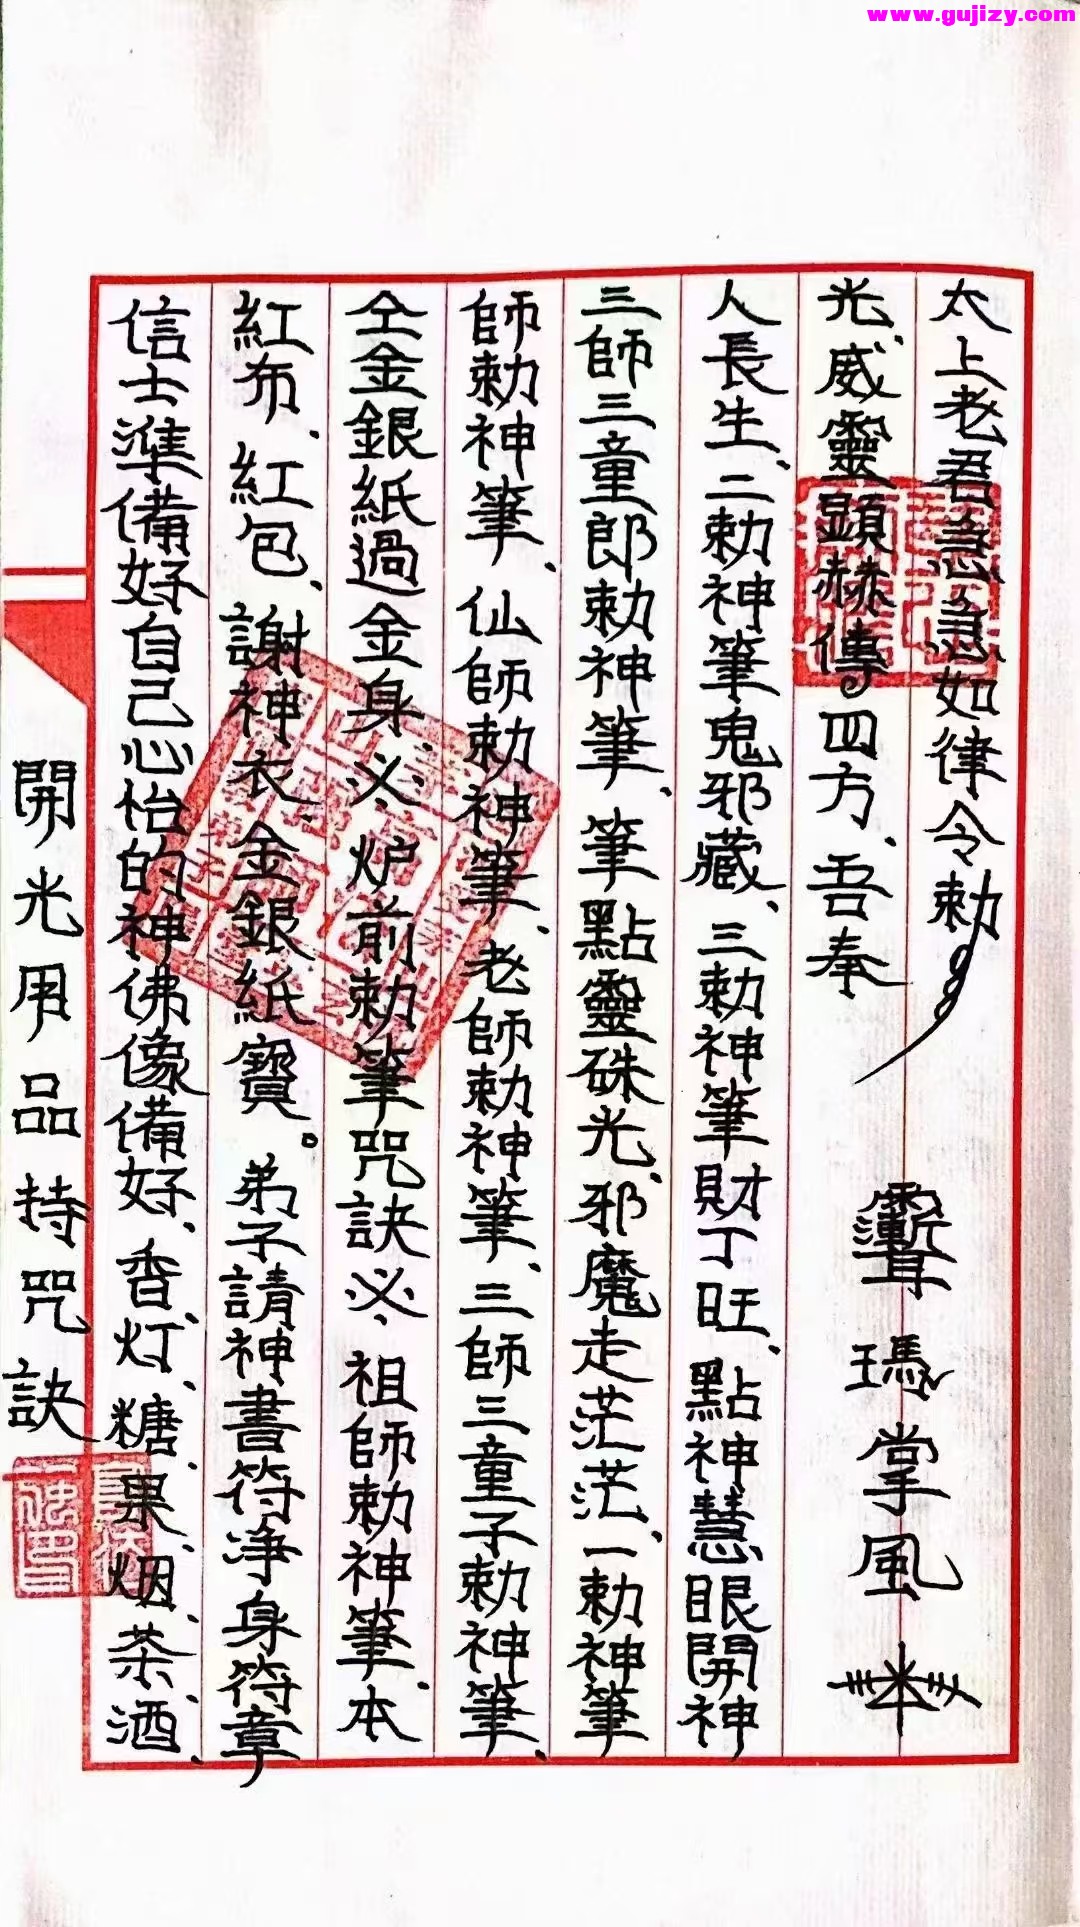 www.gujizy.com
開光用品持咒訣
信士準備好自己心怡的神佛像備好、香灯、糖果、烟、茶、酒、
紅布、紅包、謝神衣、金銀紙寶。弟子請神書符净身符章
仝金銀紙過金身、必炉前勅筆咒訣必 祖師勅神筆、本
師勅神筆、仙師勅神筆、老師勅神筆、三師三童子勅神筆、
三師三童郎勅神筆、筆點靈硃光、邪魔走茫茫、一勅神筆
人長生、二勅神筆鬼邪藏、三勅神筆財丁旺、點神慧眼開神
光、威靈顯赫傳四方、吾奉
太上老君急急如律令勅
瑪掌風